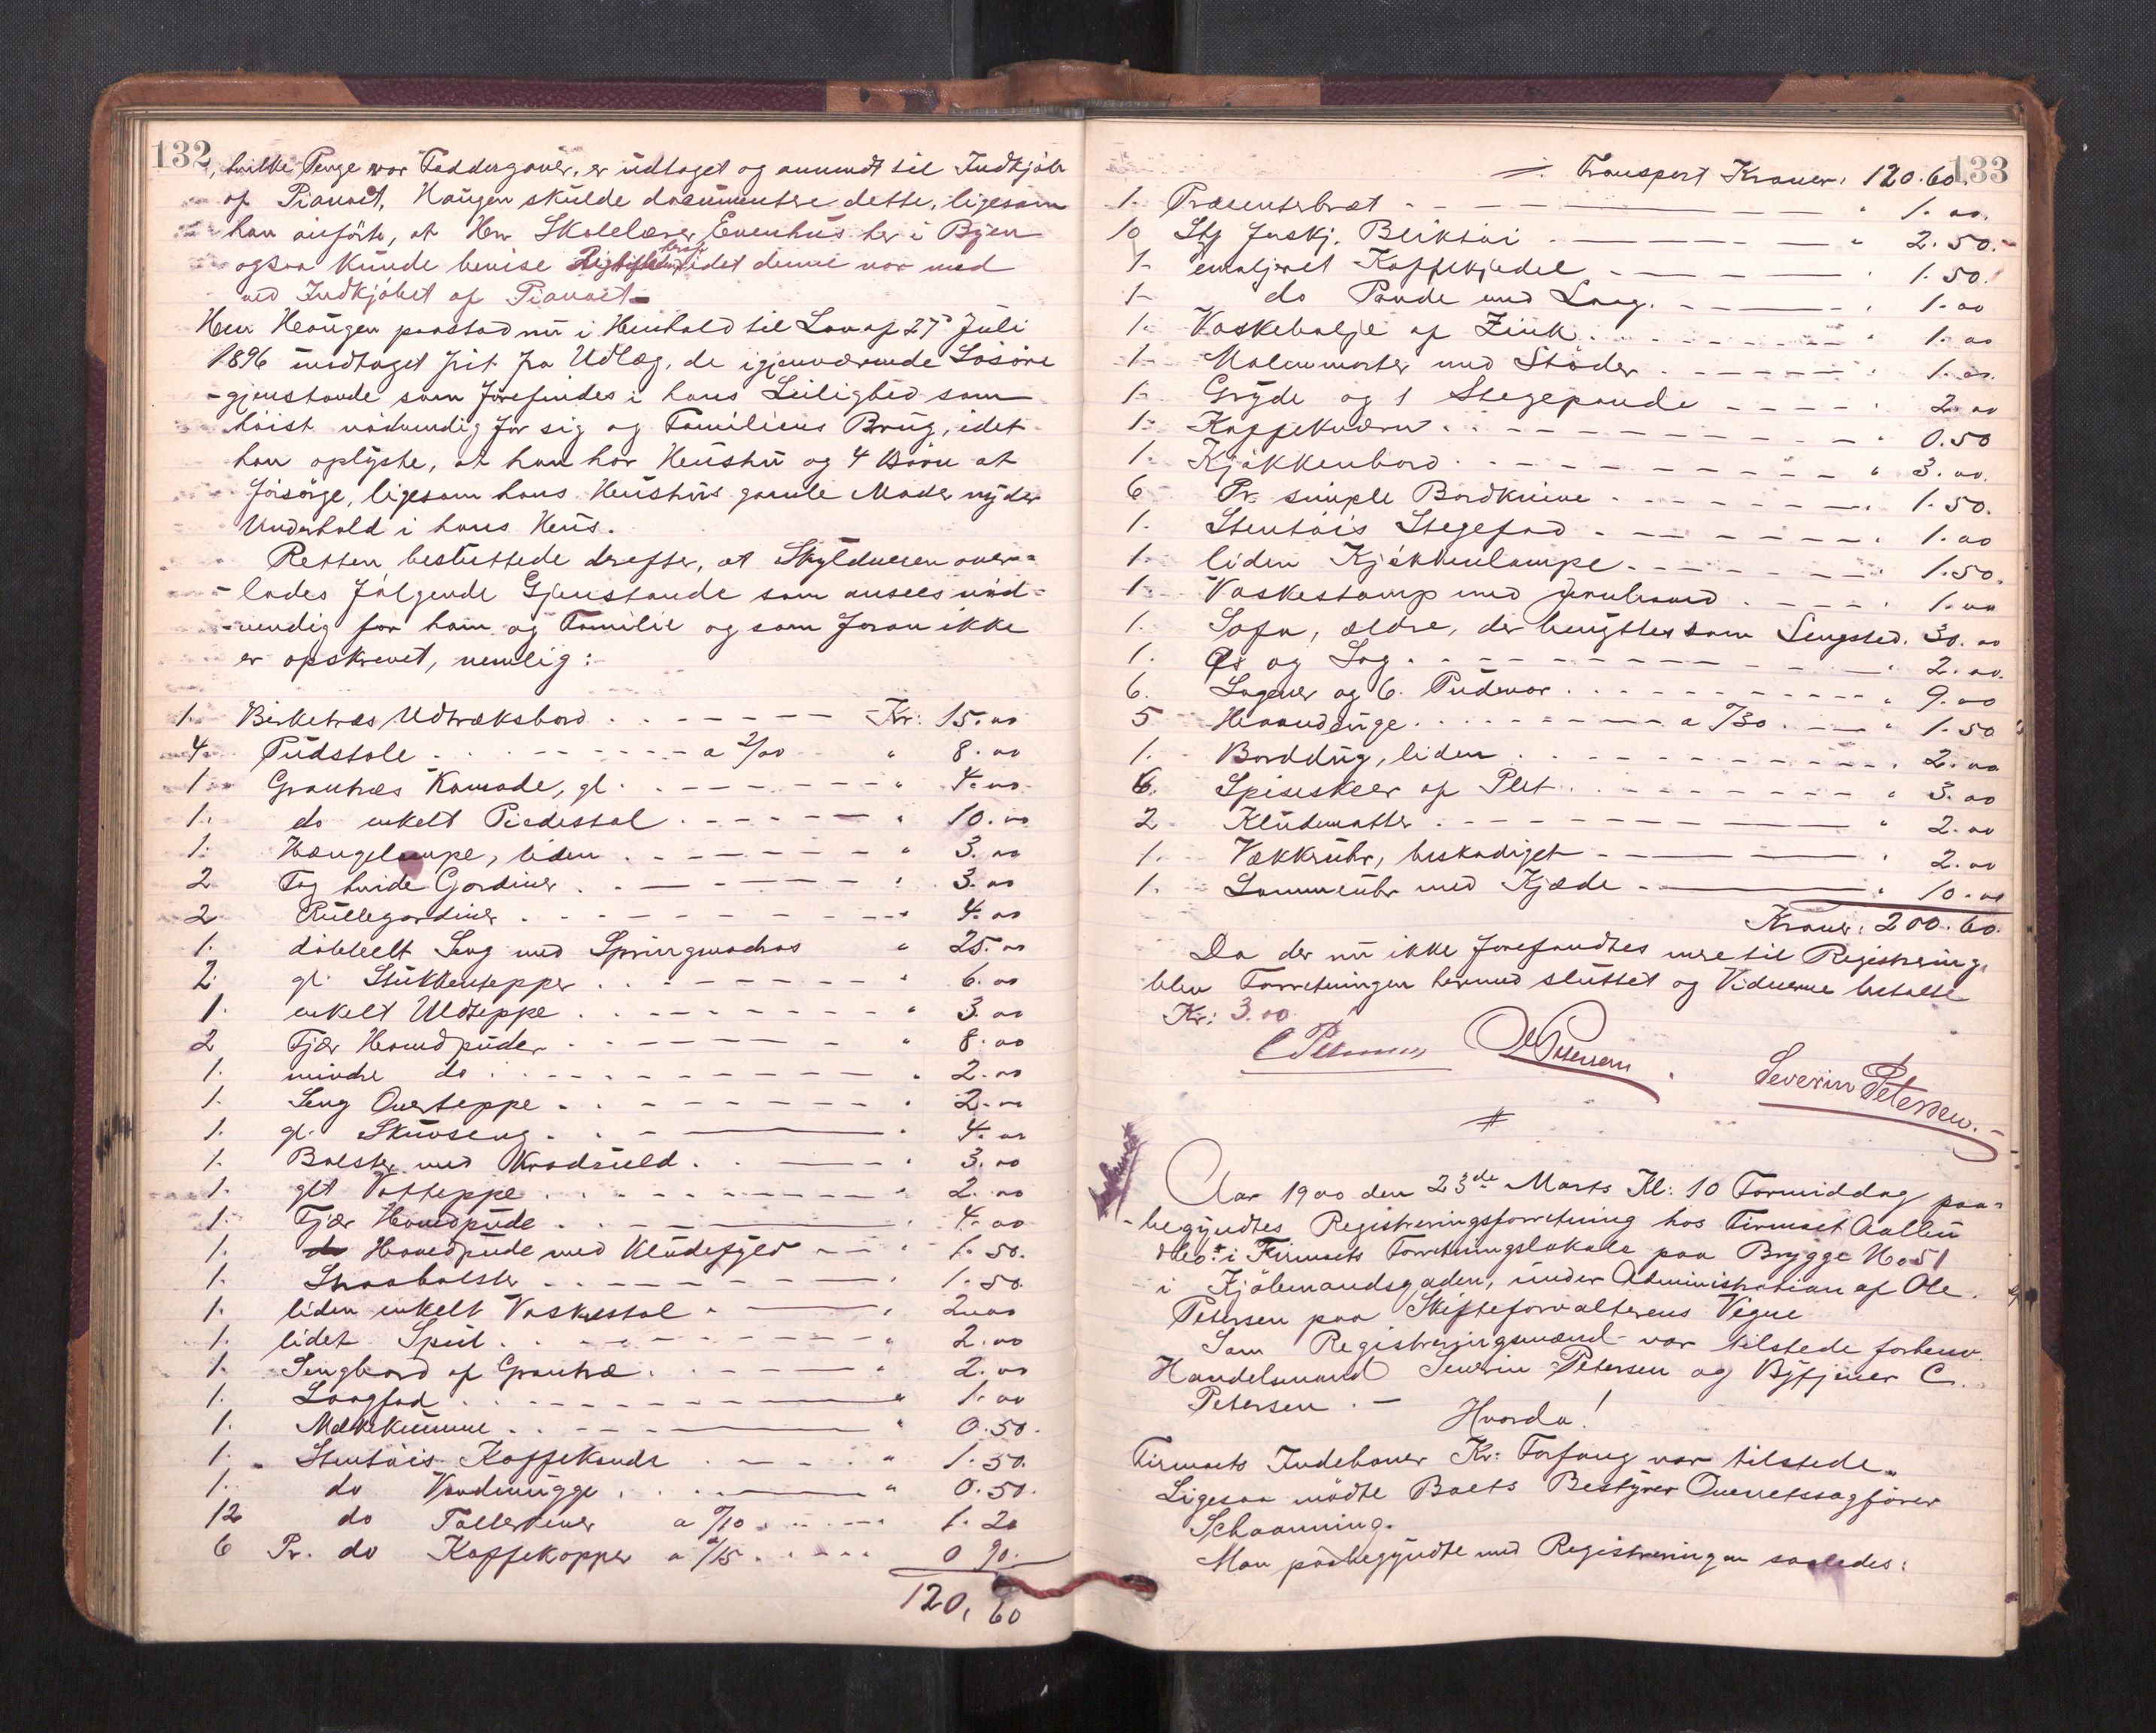 132
, hvilke Penge var Faddergaver, er udtaget og anvendt til Indkjøb
af Pianoet. Haugen skulde documentere dette, ligesom
han anførte, at Herr Skolelærer Evenhus her i Byen
ogsaa kunde bevise Rigtigheden heraf idet denne var med
ved Indkjøbet af Pianoet.
Herr Haugen paastod nu i Henhold til Lov af 27de Juli
1896 undtaget frit fra Udlæg, de igjenværende Løsøre
-gjenstande som forefindes i hans Leilighed som
høist nødvendig for sig og Familiens Brug, idet
han oplyste, at han har Hustru og 4 Børn at
forsørge, ligesom hans Hustrus gamle Moder nyder
Underhold i hans Hus.
Retten besluttede derefter, at Skyldneren over-
-lades følgende Gjenstande som ansees nød-
-vendig for ham og Familie og som foran ikke
er opskrevet, nemlig:
1. Birketræs Udtræksbord Kr: 15.00
4. Pudstole a 2/00 " 8.00
1. Grantræs Komode, gl. " 4.00
1. do enkelt Piedestal " 10.00
1. Hængelampe, liden " 3.00
2 Fag hvide Gardiner " 3.00
2 Rullegardiner " 4.00
1. dobbelt Seng med Springmadras " 25.00
2. gl. Stukketepper " 6.00
1. enkelt Uldteppe " 3.00
2 Fjær Hovedpuder " 8.00
1. mindre do " 2.00
1. Seng Overteppe " 2.00
1. gl. Skuvseng " 4.00
1. Bolster med Kradsuld " 3.00
1. glt Vatteppe " 2.00
1. Fjær Hovedpude " 4.00
1. do Hovedpude med Kludefyld " 1.50.
1. Straabolster " 1.50
1. liden enkelt Vaskestol " 2.00
1. lidet Speil " 2.00
1. Sengbord af Grantræ " 2.00
1. Laagfad " 1.00
1. Melkekumme " 0.50.
1. Stentøis Kaffekande " 1.50.
1. do Vandmugge " 0.50.
12 do Tallerkener a 0/10 1.20
6 Pr. do Kaffekopper a 0/15 0 90.
120,60
133
Transport Kroner: 120.60.
1. Præsenterbræt " 1.00.
10 Stk forskj. Bliktøi " 2.50.
1- emaljeret Kaffekjedel " 1.50.
1- do Pande med Laag " 1.00
1. Vaskebalje af Zink " 1.00
1- Malmmorter med Støder " 1.00.
1- Gryde og 1 Stegepande " 2.00
1. Kaffekværn " 0.50
1. Kjøkkenbord " 3.00.
6 Pr. simple Bordknive " 1.50.
1. Stentøis Stegefad " 1.00
1. liden Kjøkkenlampe " 1.50.
1. Vaskestamp med Jernbaand " 1.00
1. Sofa, ældre, der benyttes som Sengsted. 30.00
1. Øx og Sag " 2.00.
6. Lagener og 6. Pudevar " 9.00
5 Haanduge a 0/30 " 1.50
1. Borddug, liden " 2.00
6. Spiseskeer af Plet " 3.00
2 Kludematter " 2.00
1. Vækkeruhr, beskadiget " 2.00
1. Lommeuhr med Kjæde " 10.00
Kroner: 200.60.
Da der nu ikke forefandtes mere til Registrering,
blev Forretningen hermed sluttet og Vidnerne betalte
Kr: 3.00
C Petersen O Petersen Severin Petersen.
Aar 1900 den 23de Marts Kl: 10 Formiddag paa-
-begyndtes Registreringsforretning hos Firmaet
i Firmaets Forretningslokale paa Brygge No 51
i Kjøbmandsgaden, under Administration af Ole
Petersen paa Skifteforvalterens Vegne
Som Registreringsmænd var tilstede forhenv.
Handelsmand Severin Petersen og Bytjener C.
Petersen. -
Hvorda!
Firmaets Indehaver Kr: Forfang var tilstede.
Ligesaa mødte Boets Bestyrer Overretssagfører
Schaanning.
Man paabegyndte med Registreringen saaledes: